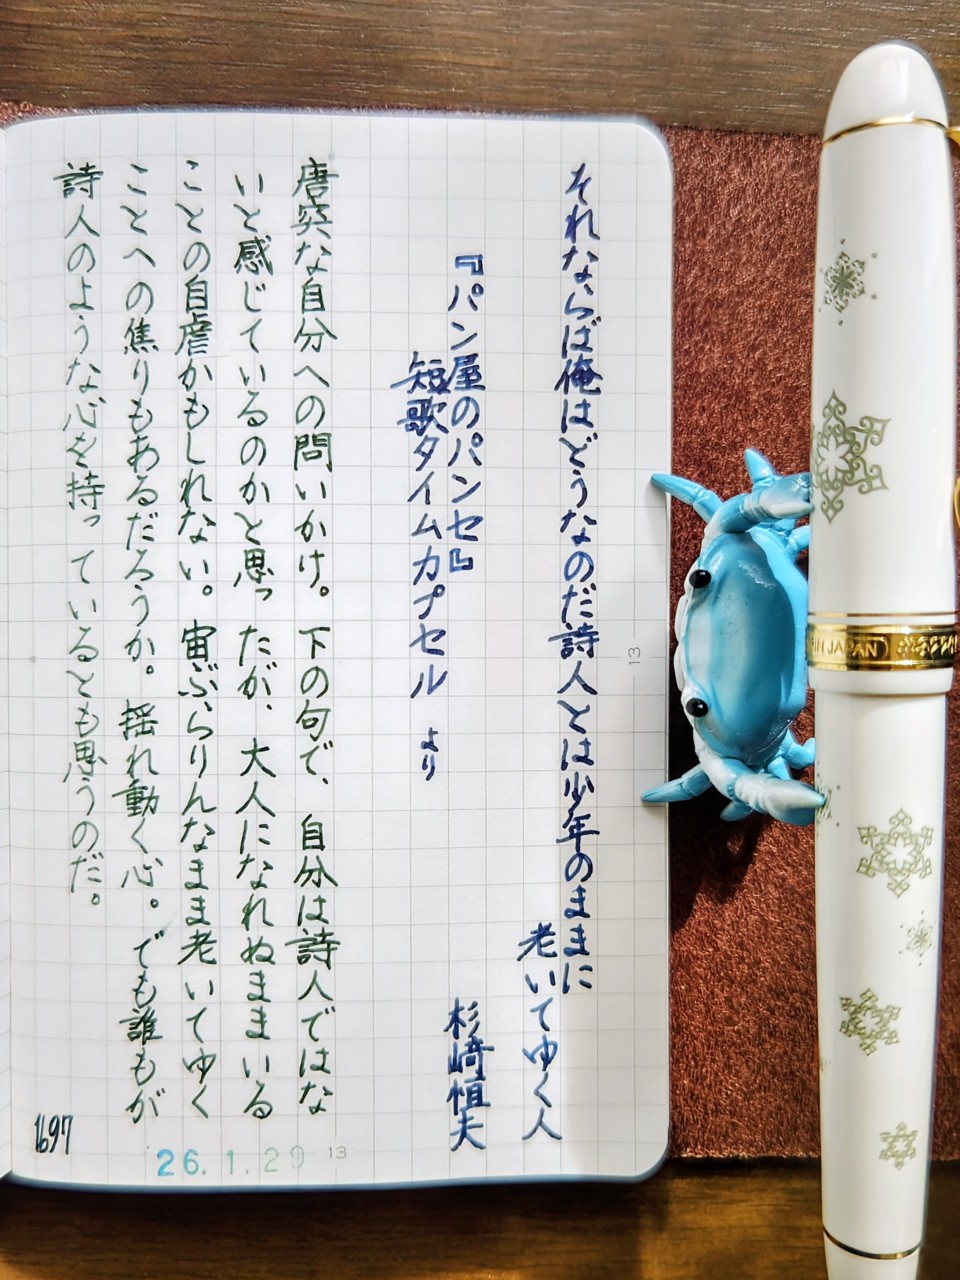 それならば俺はどうなのだ詩人とは少年のままに
老いてゆく人
杉﨑恒夫
『パン屋のパンセ』
短歌タイムカプセル より
唐突な自分への問いかけ。下の句で、自分は詩人ではな
いと感じているのかと思ったが、大人になれぬままいる
ことの自虐かもしれない。宙ぶらりんなまま老いてゆく
ことへの焦りもあるだろうか。揺れ動く心。でも誰もが
詩人のような心を持っているとも思うのだ。
1697
26.1.29
13
13
IN JAPAN